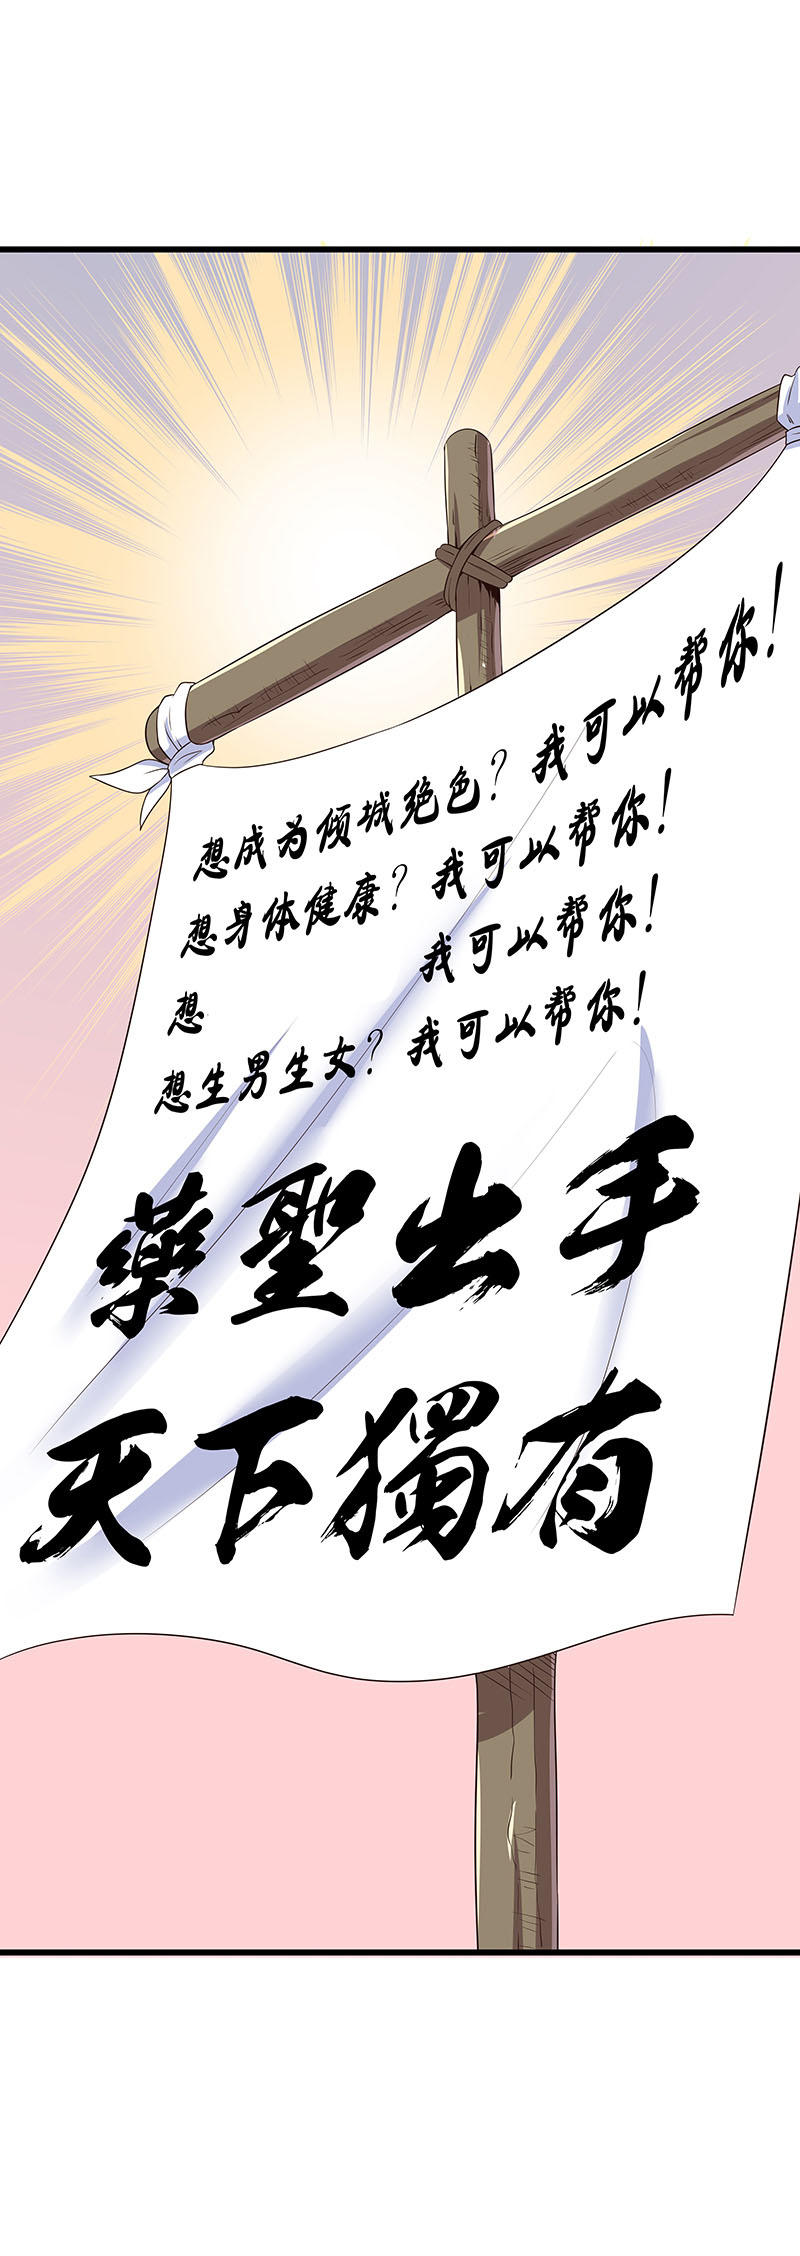 想成为倾城绝色?我可以帮你!
想身体健康?我可以帮你!
想 我可以帮你!
想生男生女?我可以帮你!
藥聖出手
天下獨有